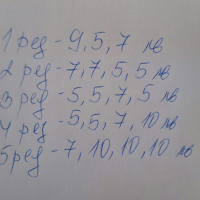 1 ред - 9, 5, 7 лв
2 ред - 7, 7, 5, 5 лв
3 ред - 5, 5, 7, 5 лв
4 ред - 5, 5, 7, 10 лв
5 ред - 7, 10, 10, 10 лв